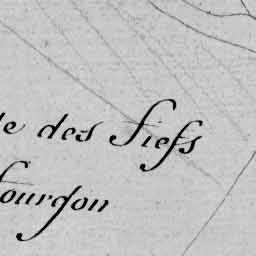 de des Fiefs
Gourdon